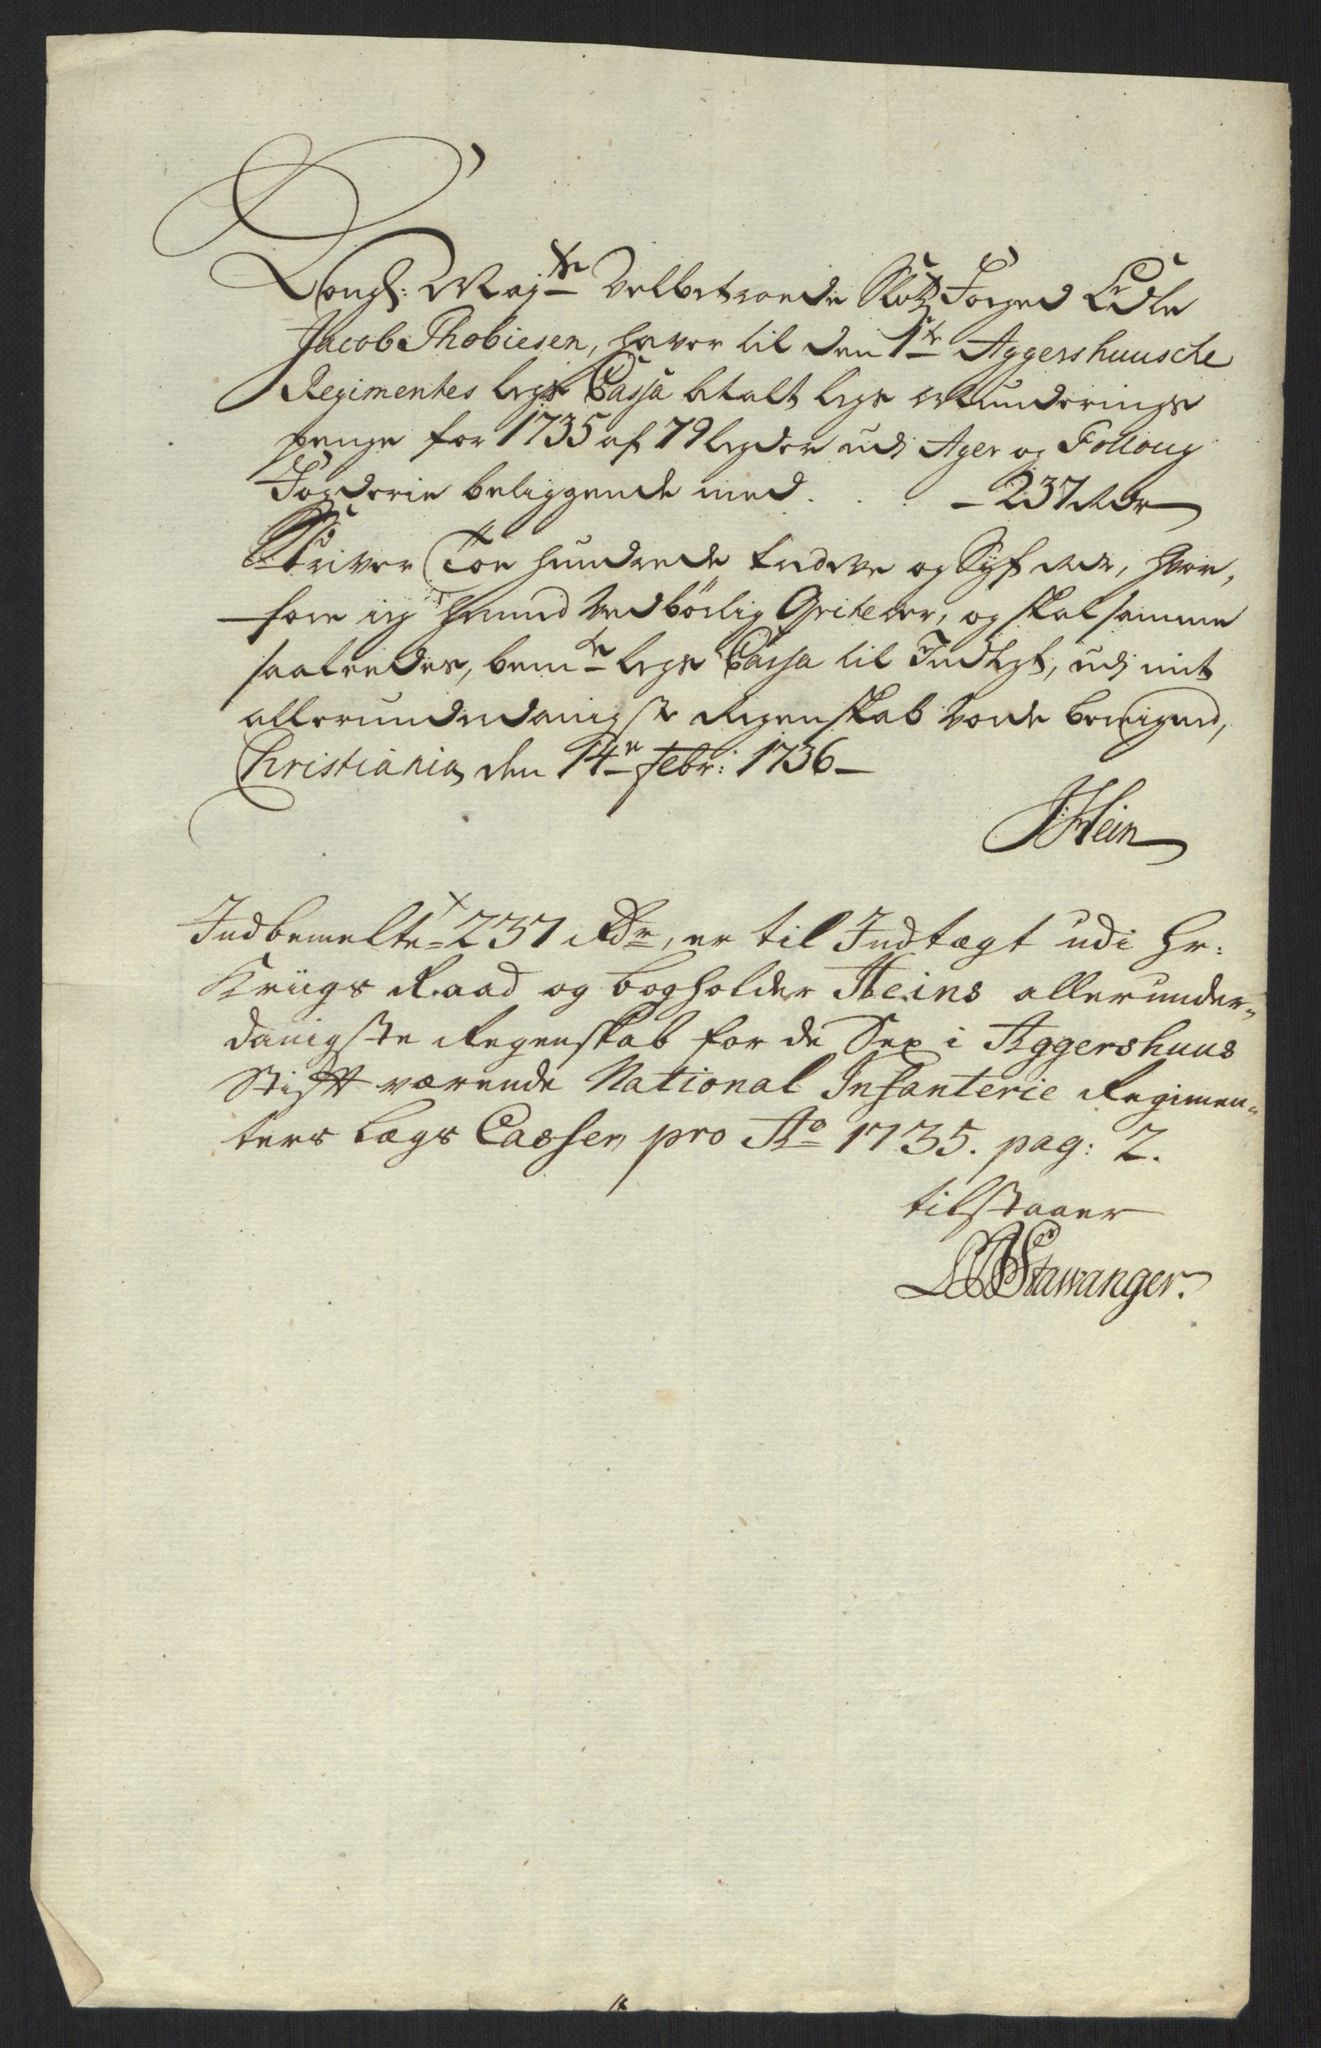 Kongl: Maj:ts Velbetroede Slotz Foged Edle
Jacob Thobiesen, haver til den 1te Aggershuusche
Regimentes legs Cassa betalt legs Munderings
penge for 1735 af 79 legder udj Ager og Folloug
Fogderie beliggende med . . . - 237 Rdr
Skriver Toe hundrede tredeve og Syf Rdr, hvor,
fore ieg hannem Vedbörlig Qviterer, og skal samme
saaleedes, bemte legs Cassa til Indtegt, udj mit
allerunderdanigste Regenskab vorde beregned,
Christiania den 14en Febr: 1736
JHein
Indbemelte 237 Rdr, er til Indtægt udi Hr:
Kriigs Raad og bogholder Heins allerunder-
danigste Regenskab for de Sex i Aggershuus
Stift værende National Infanterie Regimen-
ters Lægs Cassen pro Ao 1735. pag: 2.
tilstaaer
Stawanger.